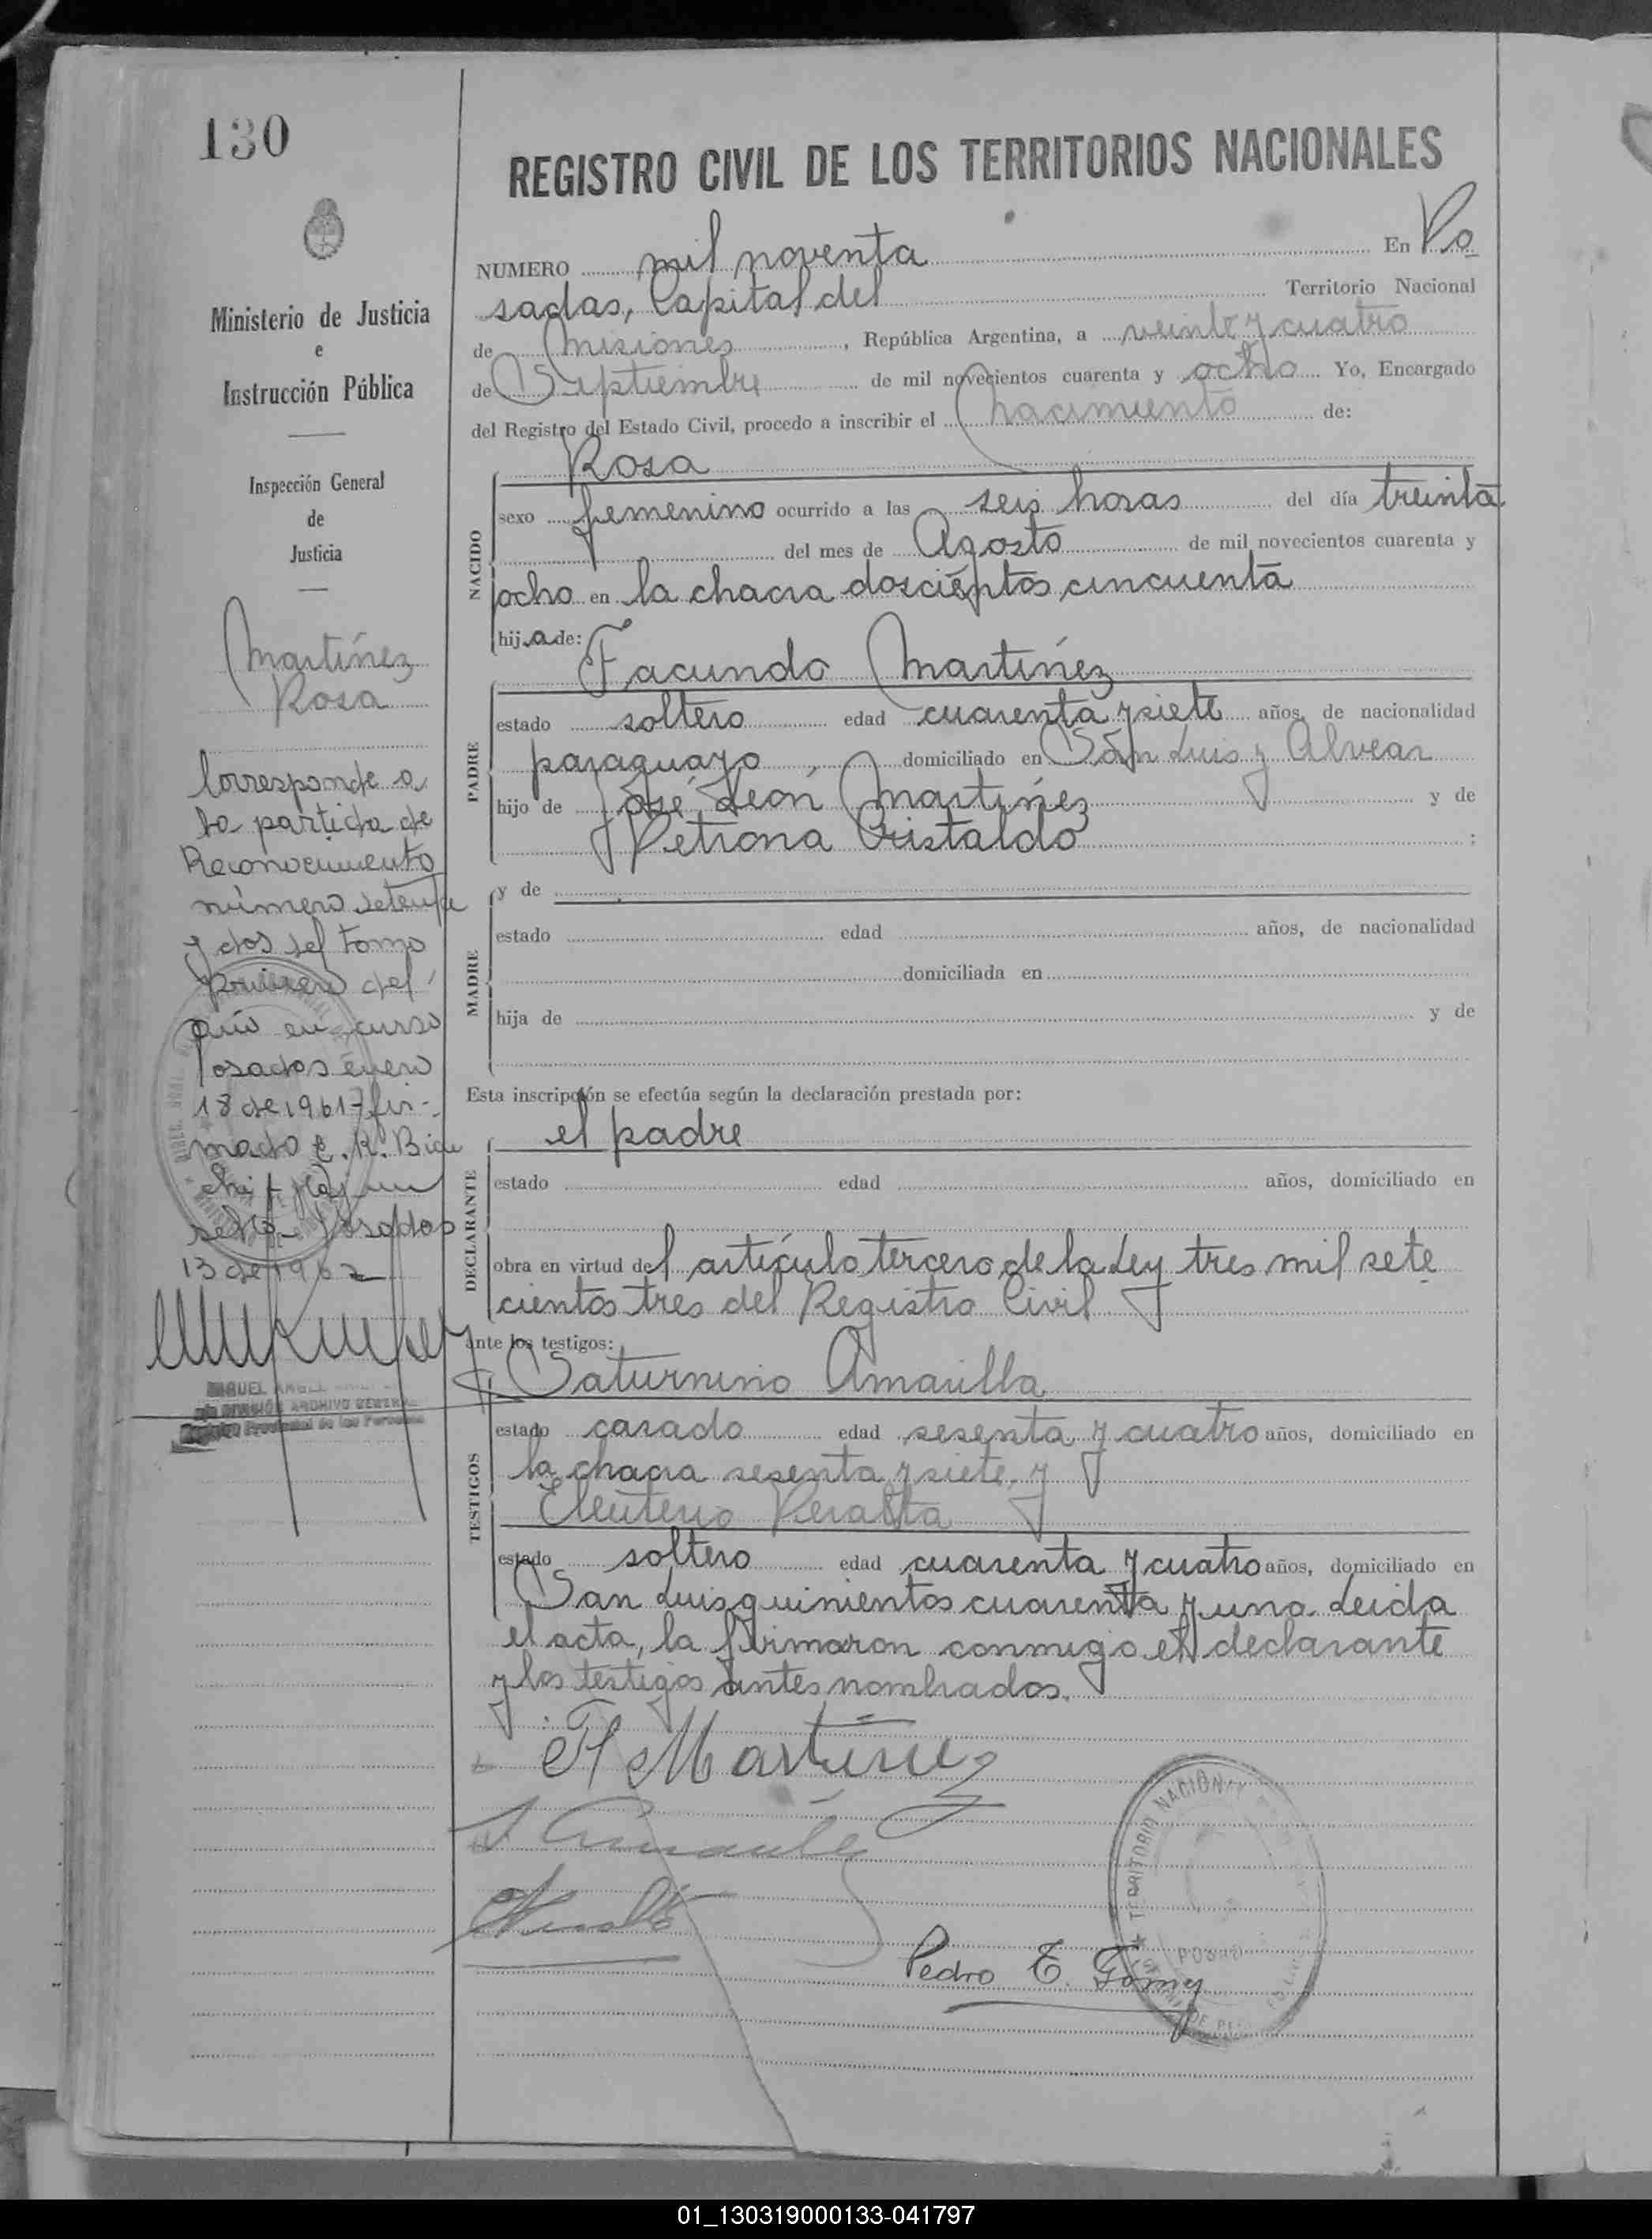 130
REGISTRO CIVIL DE LOS TERRITORIOS NACIONALES
Ministerio de Justicia
e
Instrucción Pública
Inspección General
de
Justicia
Martínez
Rosa
Corresponde a
la partida de
Reconocimiento
número setenta
y dos del tomo
primero del
año en curso
Posadas enero
18 de 1961 - fir-
mado E. R. Bian
chi - Hay un
sello - Posadas
13 de 1962
MIGUEL ANGEL
DIVISIÓN ARCHIVO GENERAL
Registro Provincial de las Personas
NUMERO mil noventa En Po
sadas, Capital del Territorio Nacional
de Misiones, República Argentina, a veinte y cuatro
de Septiembre de mil novecientos cuarenta y ocho Yo, Encargado
del Registro del Estado Civil, procedo a inscribir el nacimiento de:
Rosa
NACIDO
sexo femenino ocurrido a las seis horas del día treinta
del mes de Agosto de mil novecientos cuarenta y
ocho en la chacra doscientos cincuenta
hija de:
Facundo Martínez
PADRE
estado soltero edad cuarenta y siete años, de nacionalidad
paraguayo, domiciliado en San Luis y Alvear
hijo de José León Martínez y de
Petrona Cristaldo ;
MADRE
y de
estado edad años, de nacionalidad
domiciliada en
hija de y de
Esta inscripción se efectúa según la declaración prestada por:
el padre
DECLARANTE
estado edad años, domiciliado en
obra en virtud del artículo tercero de la Ley tres mil sete
cientos tres del Registro Civil
ante los testigos:
Saturnino Amarilla
TESTIGOS
estado casado edad sesenta y cuatro años, domiciliado en
la chacra sesenta y siete, y
Eleuterio Peralta
estado soltero edad cuarenta y cuatro años, domiciliado en
San Luis quinientos cuarenta y uno. Leida
el acta, la firmaron conmigo el declarante
y los testigos antes nombrados.
F Martínez
S Amarilla
Peralta
Pedro E. Gomez
TERRITORIO NACIONAL
01_130319000133-041797